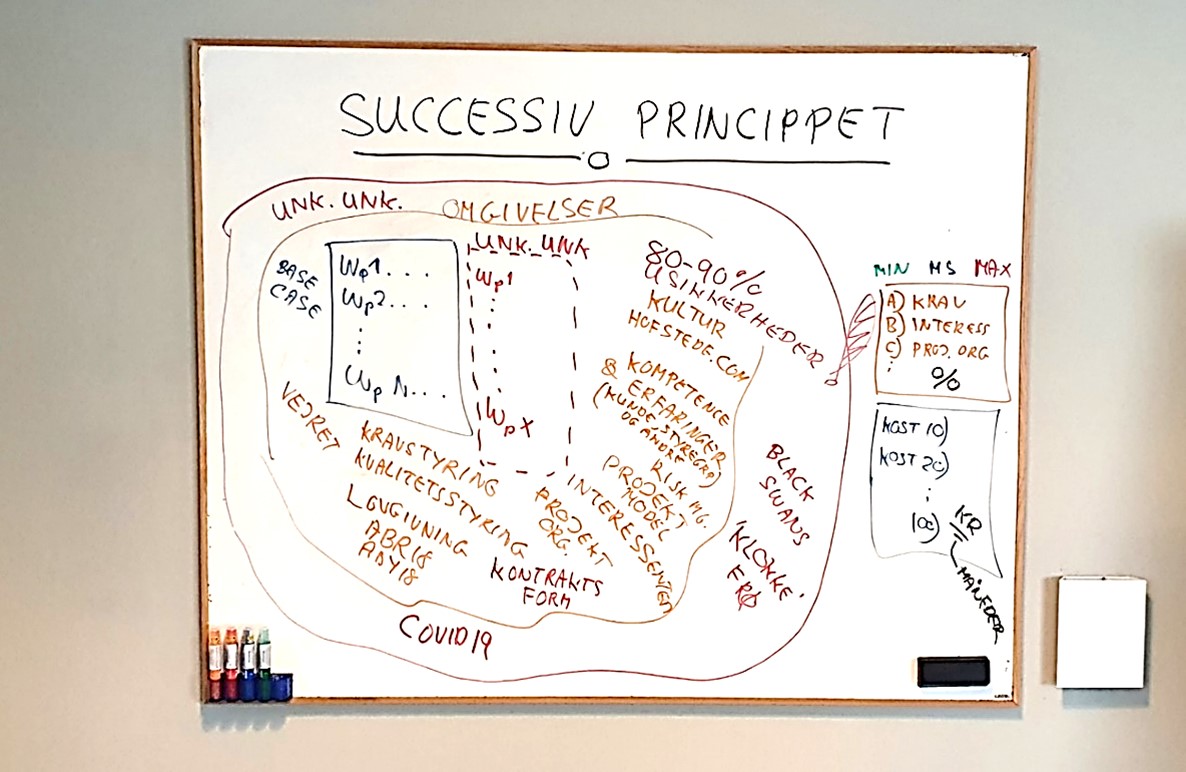 SUCCESSIV PRINCIPPET
UNK. UNK.
OMGIVELSER
BASE
CASE
WP1...
WP2...
WP N...
UNK. UNK
WP1
WPX
80-90%
USIKKERHEDER
KULTUR
HOFSTEDE.COM
KOMPETENCE
& ERFARINGER
(KUNDE, STYREGRP
OG ANDRE)
RISK MG.
PROJEKT
MODEL
INTERESSENTER
PROJEKT
ORG.
KONTRAKTS
FORM
VEJRET
KRAVSTYRING
KVALITETSSTYRING
LOVGIVNING
ABR18
ABY18
COVID19
BLACK
SWANS
'KLOKKE'
FRØ
MIN MS MAX
A) KRAV
B) INTERESS
C) PROJ. ORG
%
KOST 1α)
KOST 2α)
KR
MÅNEDER